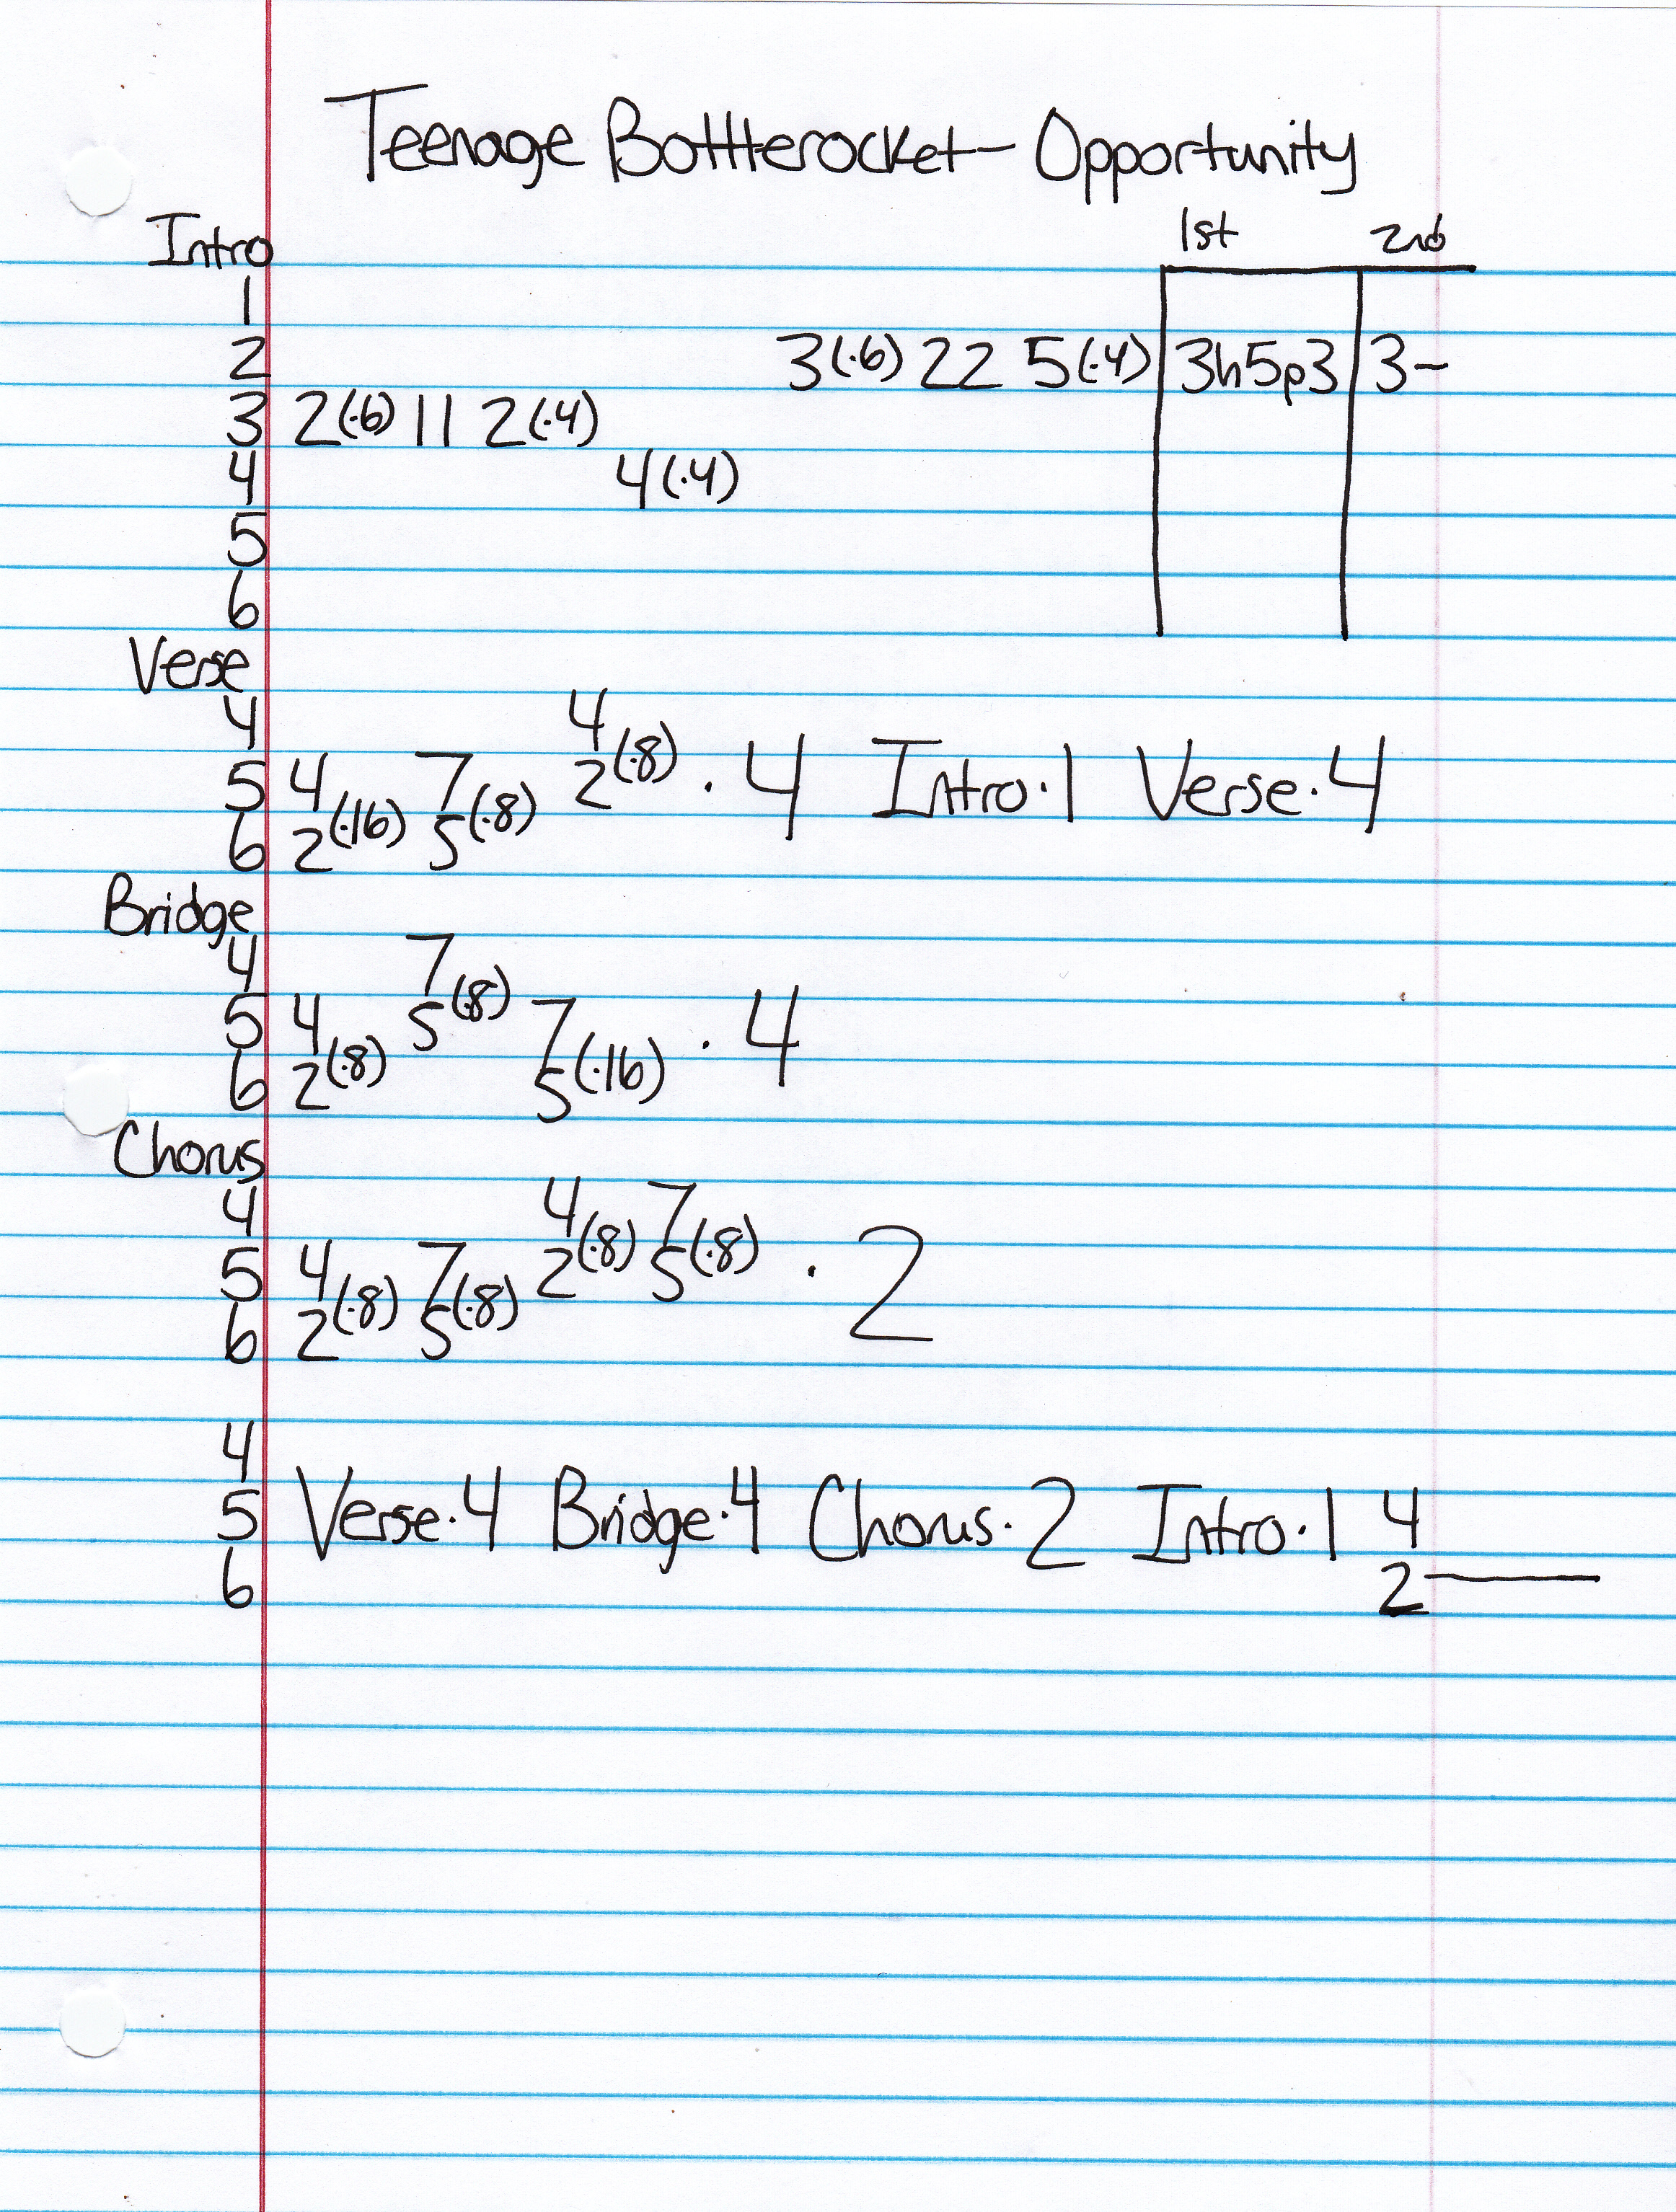 Teenage Bottlerocket - Opportunity
Intro 1st 2nd
1
2 3(·6) 22 5(·4) 3h5p3 3-
3 2(·6) 11 2(·4)
4 4(·4)
5
6
Verse
4 4
5 4 7 2(·8) · 4 Intro·1 Verse·4
6 2(·16) 5(·8)
Bridge
4 7
5 4 5(·8) 7 · 4
6 2(·8) 5(·16)
Chorus
4 4 7
5 4 7 2(·8) 5(·8) · 2
6 2(·8) 5(·8)
4
5 Verse·4 Bridge·4 Chorus·2 Intro·1 4
6 2